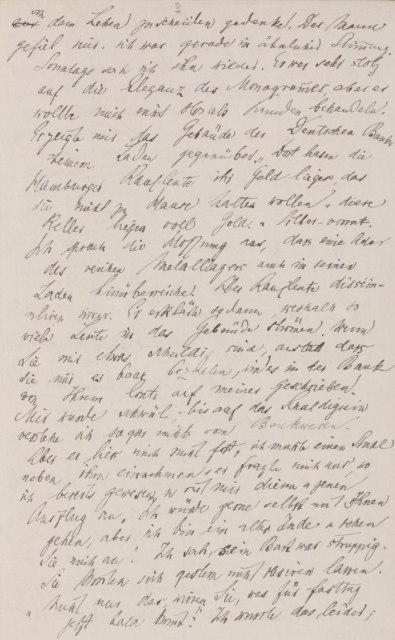 3
aus dem Leben zu scheiden gedenke! Der Mann
gefiel mir. ich war gerade in ähnlicher Stimmung.
Sonntags sah ich ihn wieder. Er war sehr stolz
auf die Eleganz des Monogrames, aber er
wollte mich nicht als Kunden behandeln.
Er zeigte mir das Gebäude der Deutschen Bank
seinem Laden gegenüber. "Dort haben die
Hamburger Kaufleute ihr Gold liegen das
sie nicht zu Hause halten wollen", diese
Keller liegen voll Gold- u Silber
Ich sprach die Hoffnung aus, dass eine Ader
des reichen Metallagers auch in seinen
Laden hinüberreiche. Der Kaufleute
Er erklärte sodann, weshalb so
viele Leute in das Gebäude strömen, wenn
Sie mir etwas schuldig sind, anstatt dass
Sie mir es baar bezahlen, wird es in der Bank
von Ihrem Conto auf meines geschrieben.
Mir wurde schwül: bis auf das Schuldigsein
verstehe ich so gar nichts vom Bankwesen.
Aber er liess mich nicht fort, ich musste einen Stuhl
neben ihm einnehmen er fragte mich aus, wo
ich bereits gewesen, er riet mir diesen u jenen
Ausflug an, "ich würde gerne selbst mit Ihnen
gehen, aber ich bin ein alter Jude u sehen
Sie mich an!" Ich sah, sein Bart war struppig.
Sie dürfen sich gestern nicht rasiren lassen.
"Nicht nur das, wissen Sie, was für Fasttag
jetzt bald kommt?" Ich wusste das leider,